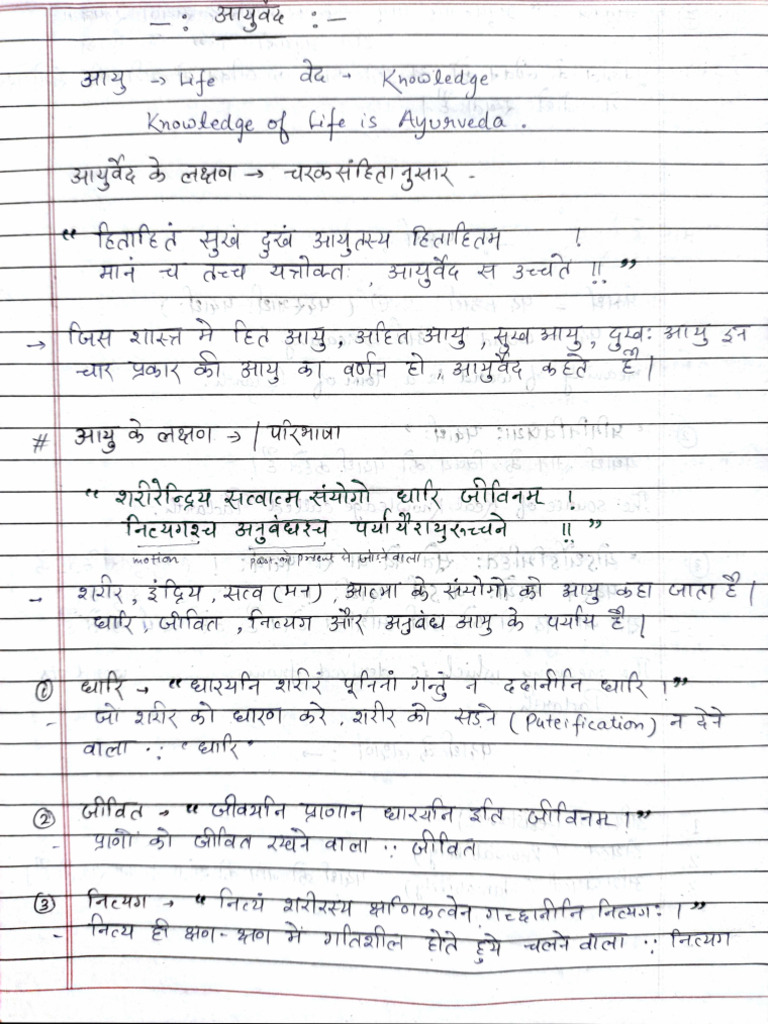 -: आयुर्वेद :-
आयु → Life वेद - Knowledge
Knowledge of Life is Ayurveda.
आयुर्वेद के लक्षण → चरकसंहितानुसार -
“ हिताहितं सुखं दुखं आयुतस्य हिताहितम ।
मानं च तच्च यत्रोक्तः , आयुर्वेद स उच्चते ॥ ”
→ जिस शास्त्र मे हित आयु , अहित आयु , सुख आयु , दुखः आयु इन
चार प्रकार की आयु का वर्णन हो , आयुर्वेद कहते है ।
# आयु के लक्षण → / परिभाषा
“ शरीरेन्द्रिय सत्वात्म संयोगो धारि जीवितम ।
नित्यगश्च अनुबंधश्च पर्यायैरायुरुच्चते ॥ ”
motion ले जाने वाला
- शरीर , इंद्रिय , सत्व (मन) आत्मा के संयोगो को आयु कहा जाता है ।
धारि , जीवित , नित्यग और अनुबंध आयु के पर्याय है ।
① धारि → “ धारयति शरीरं पूतितां गन्तुं न ददातीति धारि ।”
- जो शरीर को धारण करे , शरीर को सड़ने (Puterification) न देने
वाला ∵ धारि
② जीवित → “ जीवयति प्राणान धारयति इति जीवितम ।”
- प्राणो को जीवित रखने वाला ∵ जीवित
③ नित्यग → “ नित्यं शरीरस्य क्षाणिकत्वेन गच्छतीति नित्यगः ।”
- नित्य ही क्षण-क्षण में गतिशील होते हुये चलने वाला ∵ नित्यग